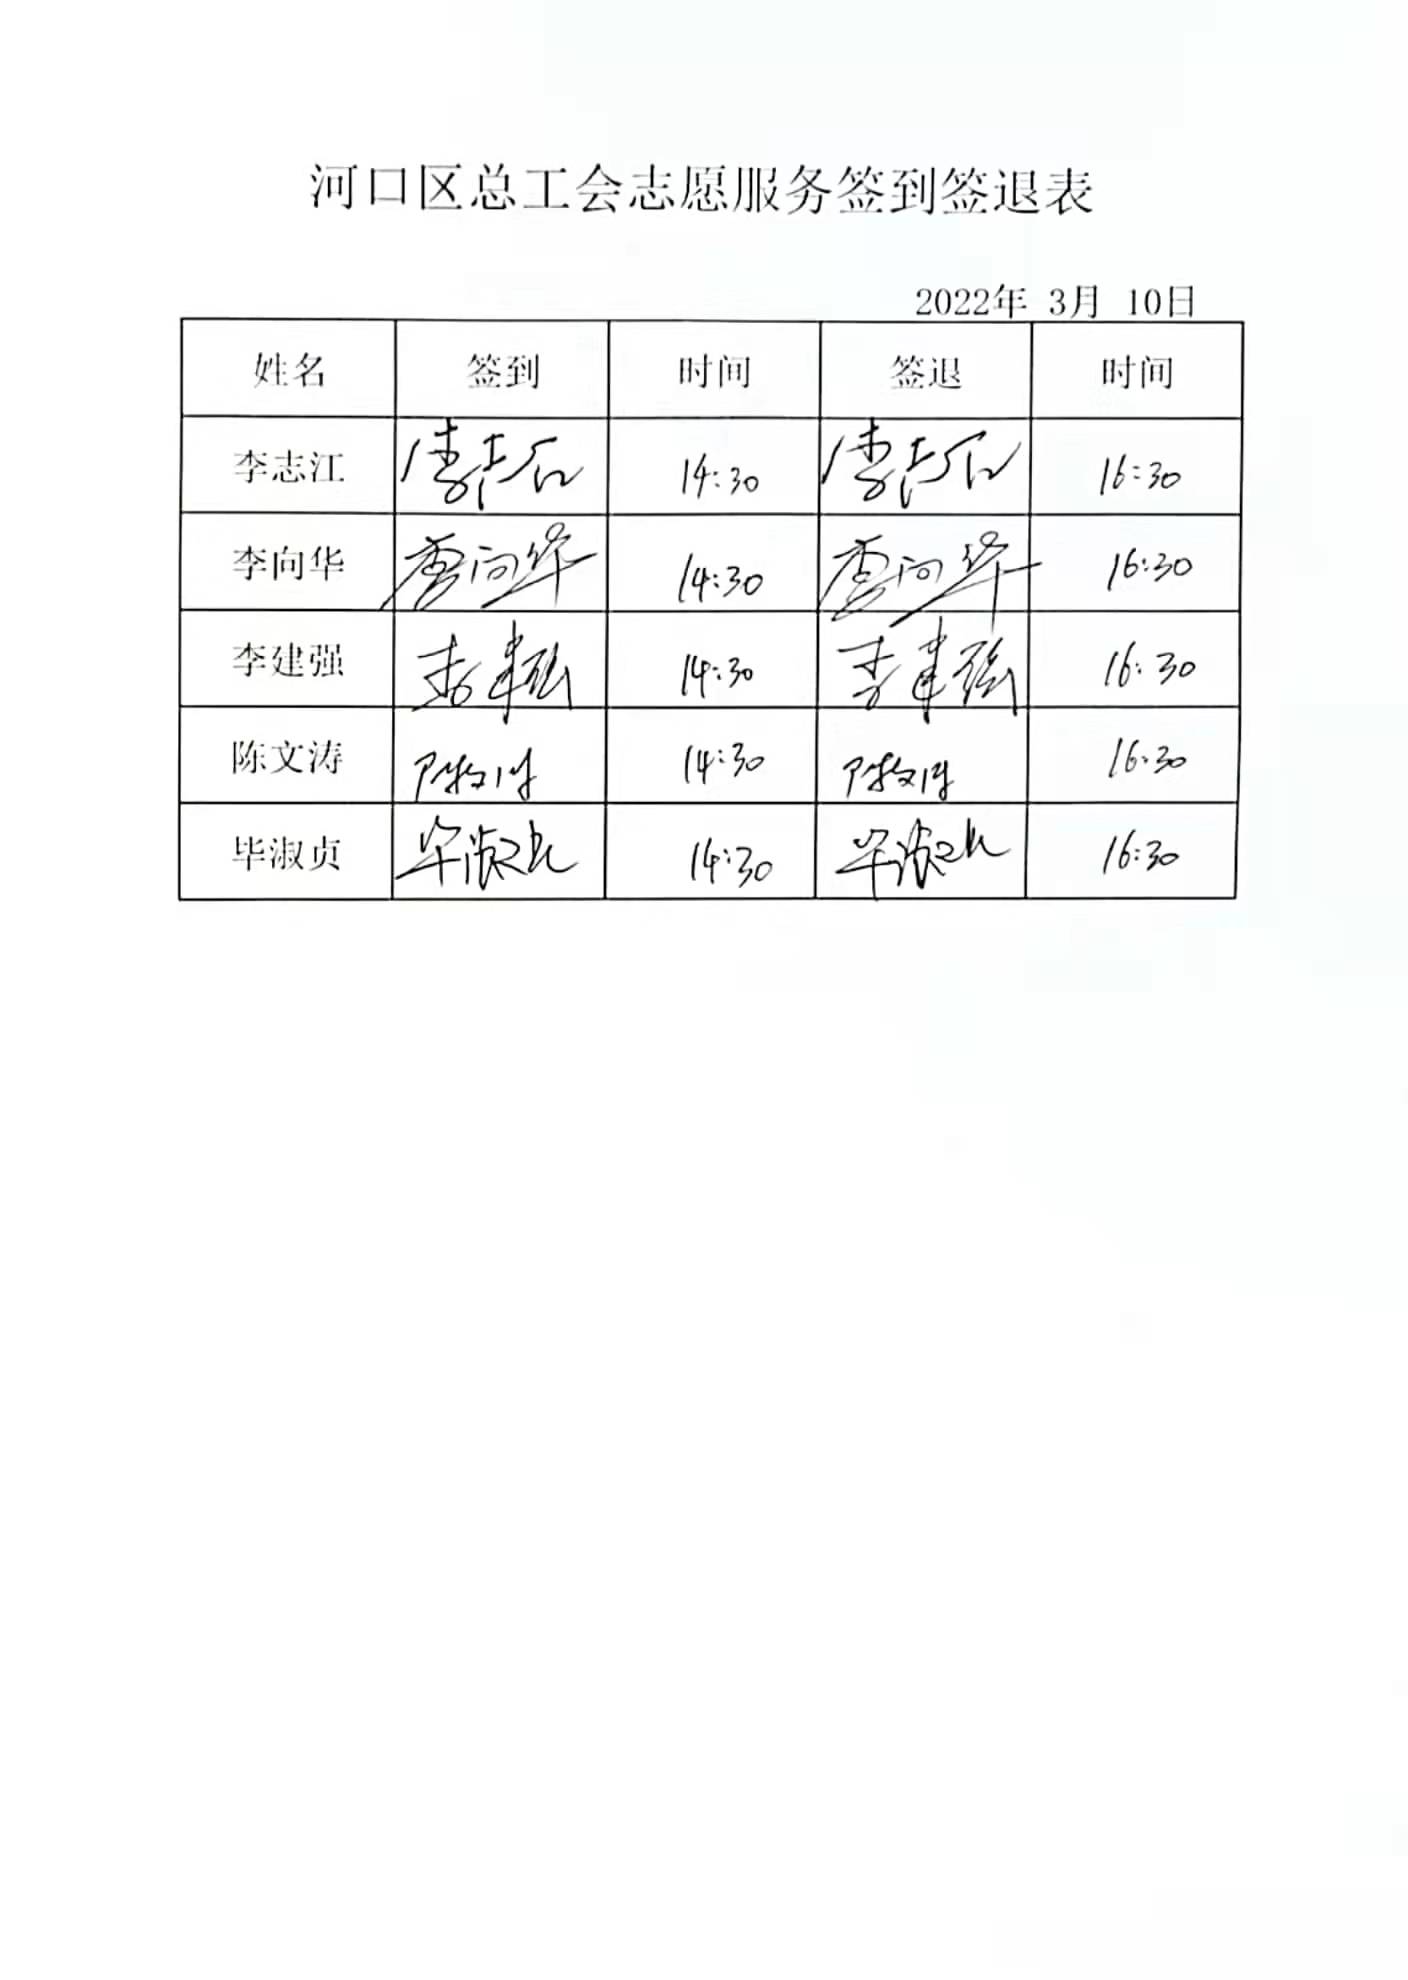 河口区总工会志愿服务签到签退表
2022年 3月 10日
姓名 签到 时间 签退 时间
李志江 李志江 14:30 李志江 16:30
李向华 李向华 14:30 李向华 16:30
李建强 李建强 14:30 李建强 16:30
陈文涛 陈文涛 14:30 陈文涛 16:30
毕淑贞 毕淑贞 14:30 毕淑贞 16:30